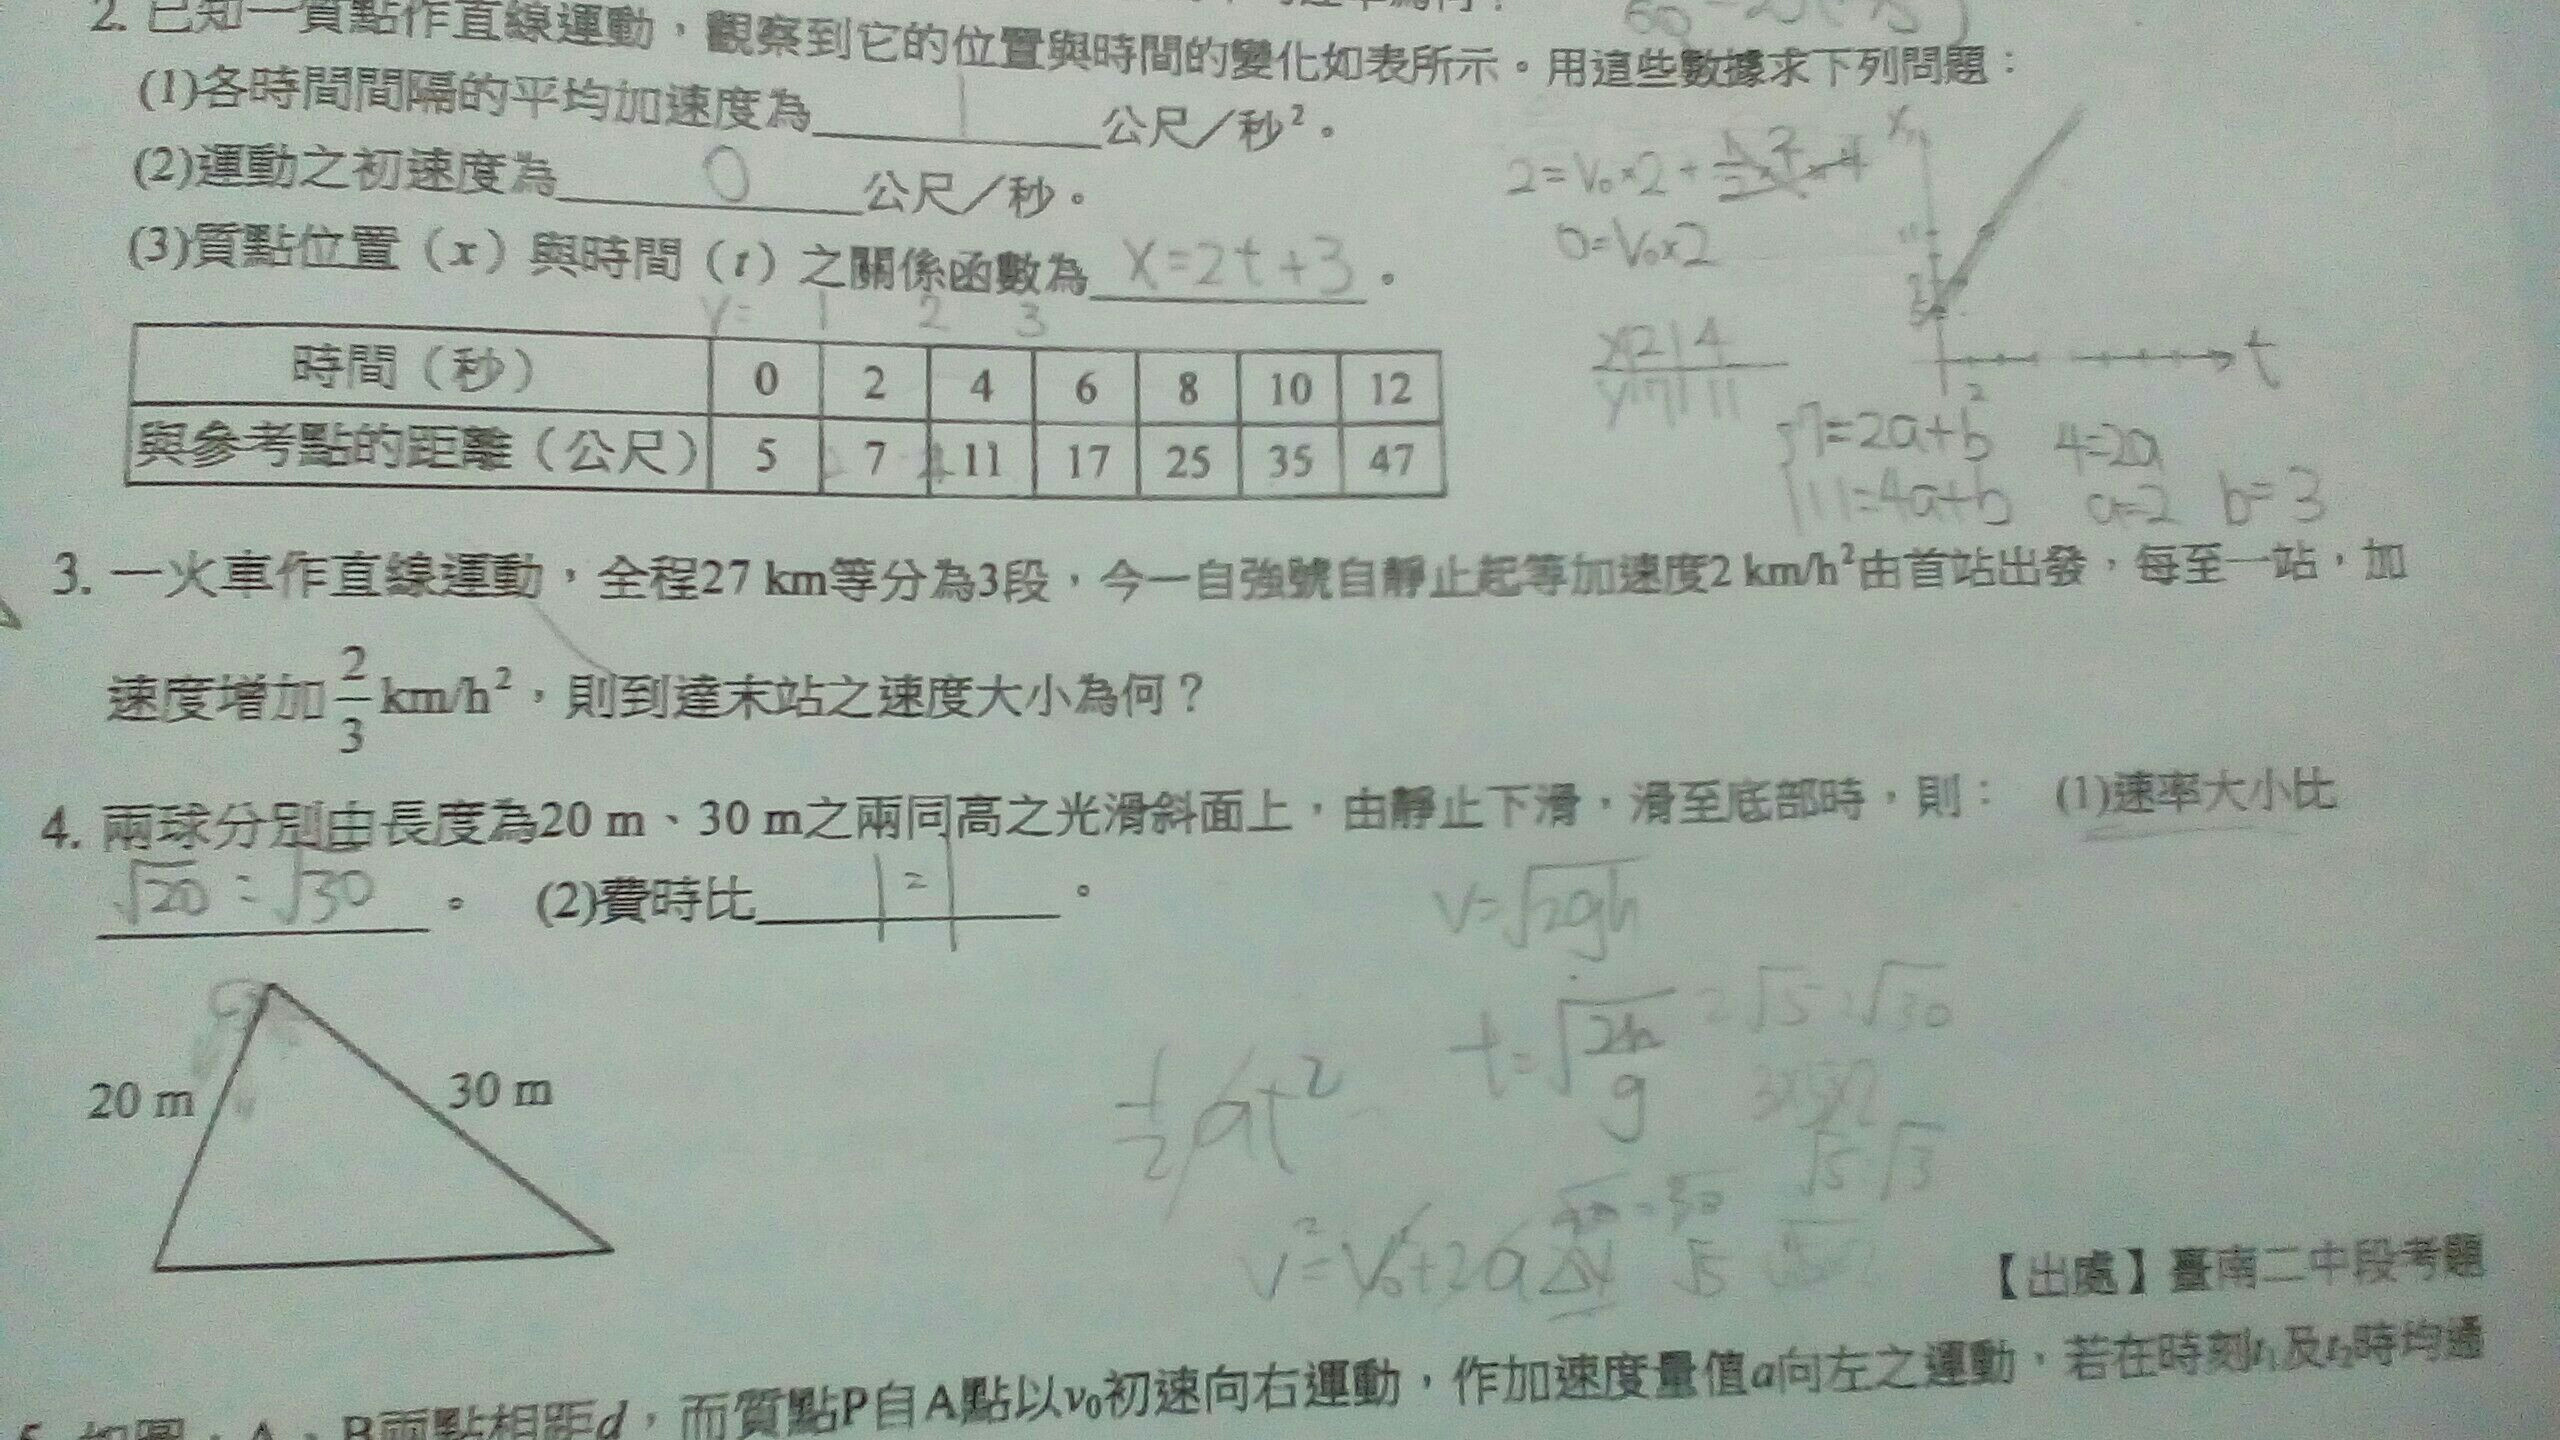 2. 已知一質點作直線運動，觀察到它的位置與時間的變化如表所示。用這些數據求下列問題：
(1)各時間間隔的平均加速度為 1 公尺／秒²。
(2)運動之初速度為 0 公尺／秒。
(3)質點位置（x）與時間（t）之關係函數為 x=2t+3。
V= 1 2 3
時間（秒） 0 2 4 6 8 10 12
與參考點的距離（公尺） 5 7 11 17 25 35 47
0=V₀×2
x 2 4
y 7 11
x
t
2
7=2a+b 4=2a
11=4a+b a=2 b=3
3. 一火車作直線運動，全程27 km等分為3段，今一自強號自靜止起等加速度2 km/h²由首站出發，每至一站，加
速度增加2/3 km/h²，則到達末站之速度大小為何？
4. 兩球分別由長度為20 m、30 m之兩同高之光滑斜面上，由靜止下滑，滑至底部時，則： (1)速率大小比
√20：√30 。 (2)費時比 1：1 。
V=√2gh
t=√2h/g
√5：√30
20 m
30 m
1/2 at²
√5 √3
V²=V₀²+2aΔy √5
【出處】臺南二中段考題
5. 如圖，A、B兩點相距d，而質點P自A點以v₀初速向右運動，作加速度量值a向左之運動，若在時刻t₁及t₂時均通